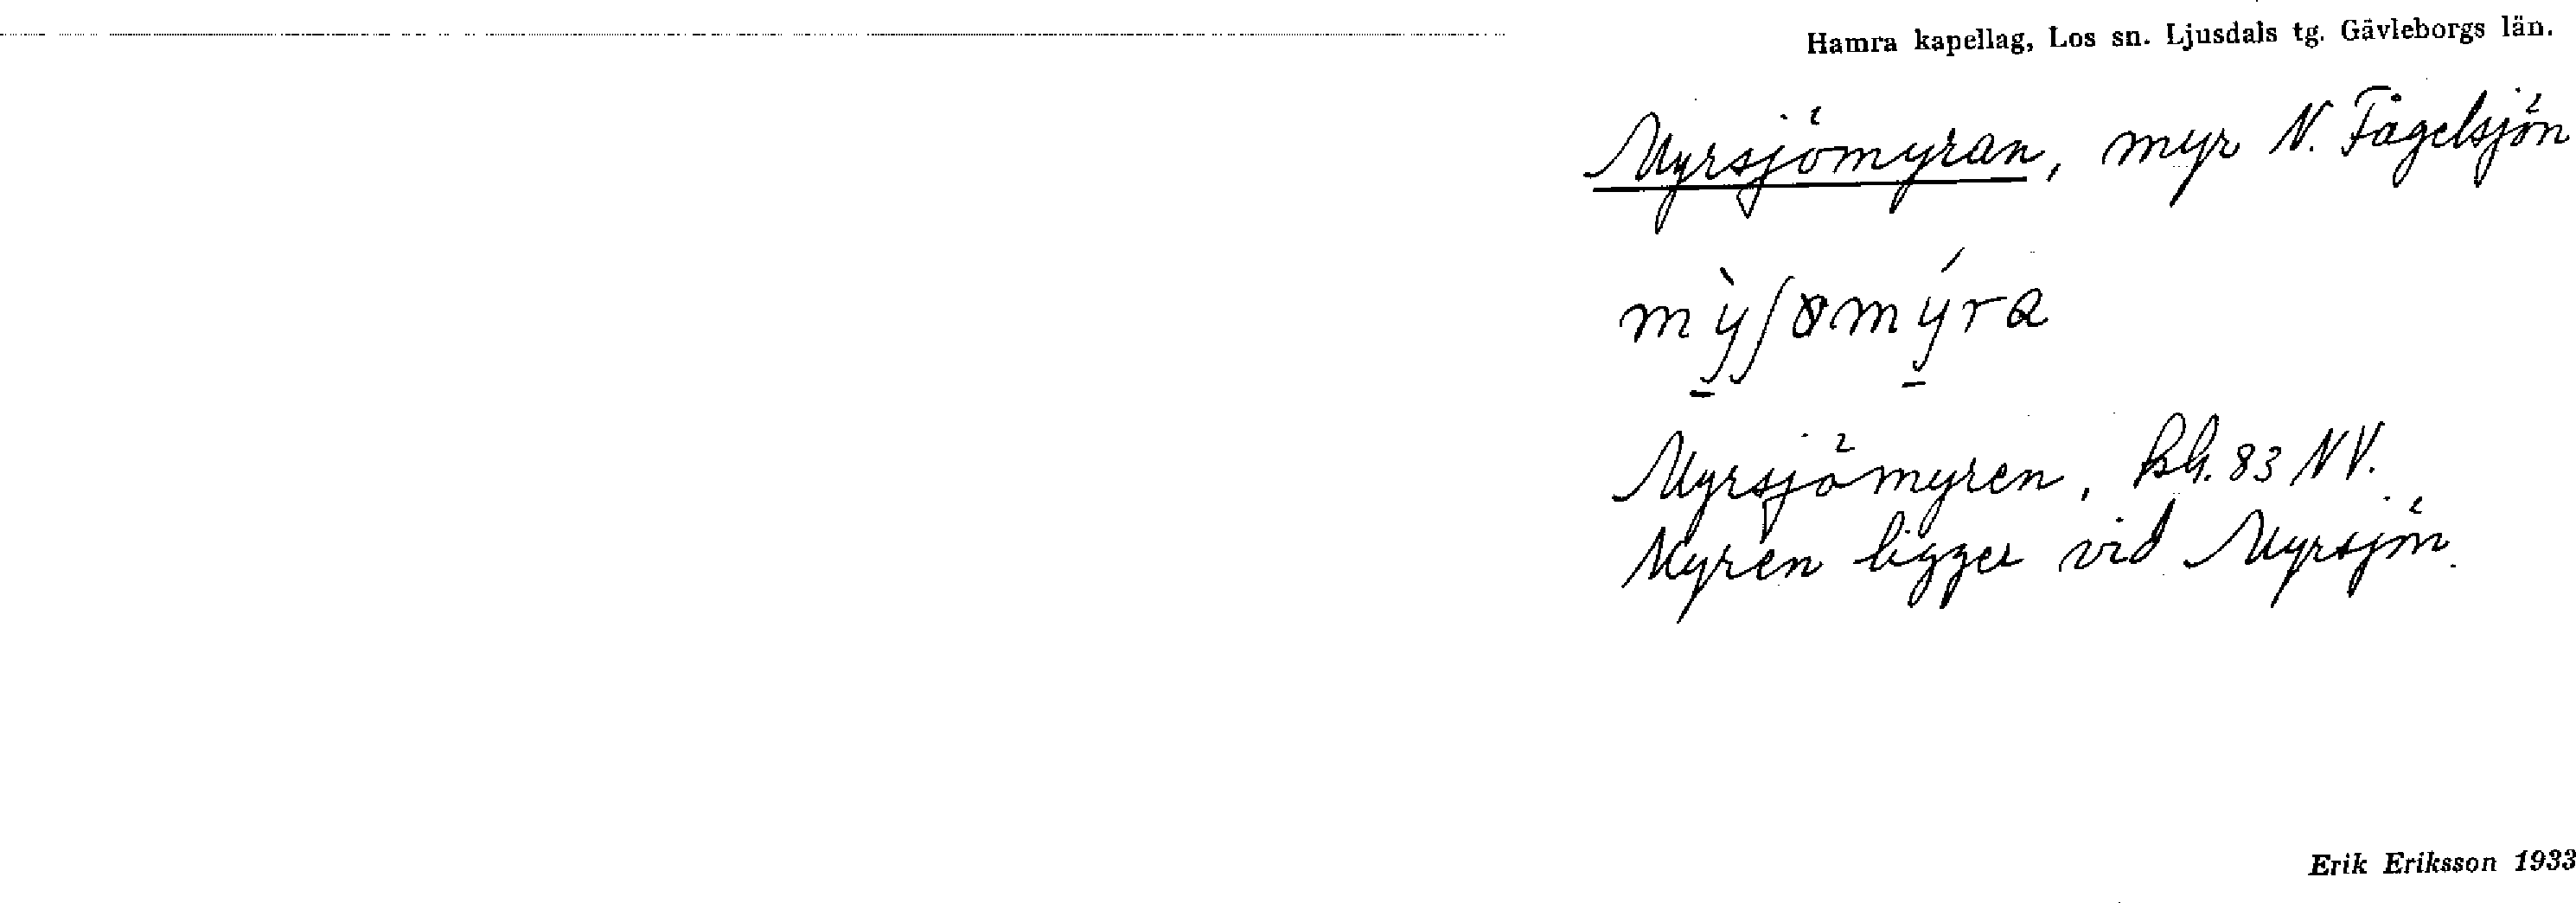 Hamra kapellag, Los sn. Ljusdals tg. Gävleborgs län.
Myrsjömyran, myr N. Fågelsjön
mỳʃömýra
Myrsjömyren, bl. 83 NV.
Myren ligger vid Myrsjön.
Erik Eriksson 1933